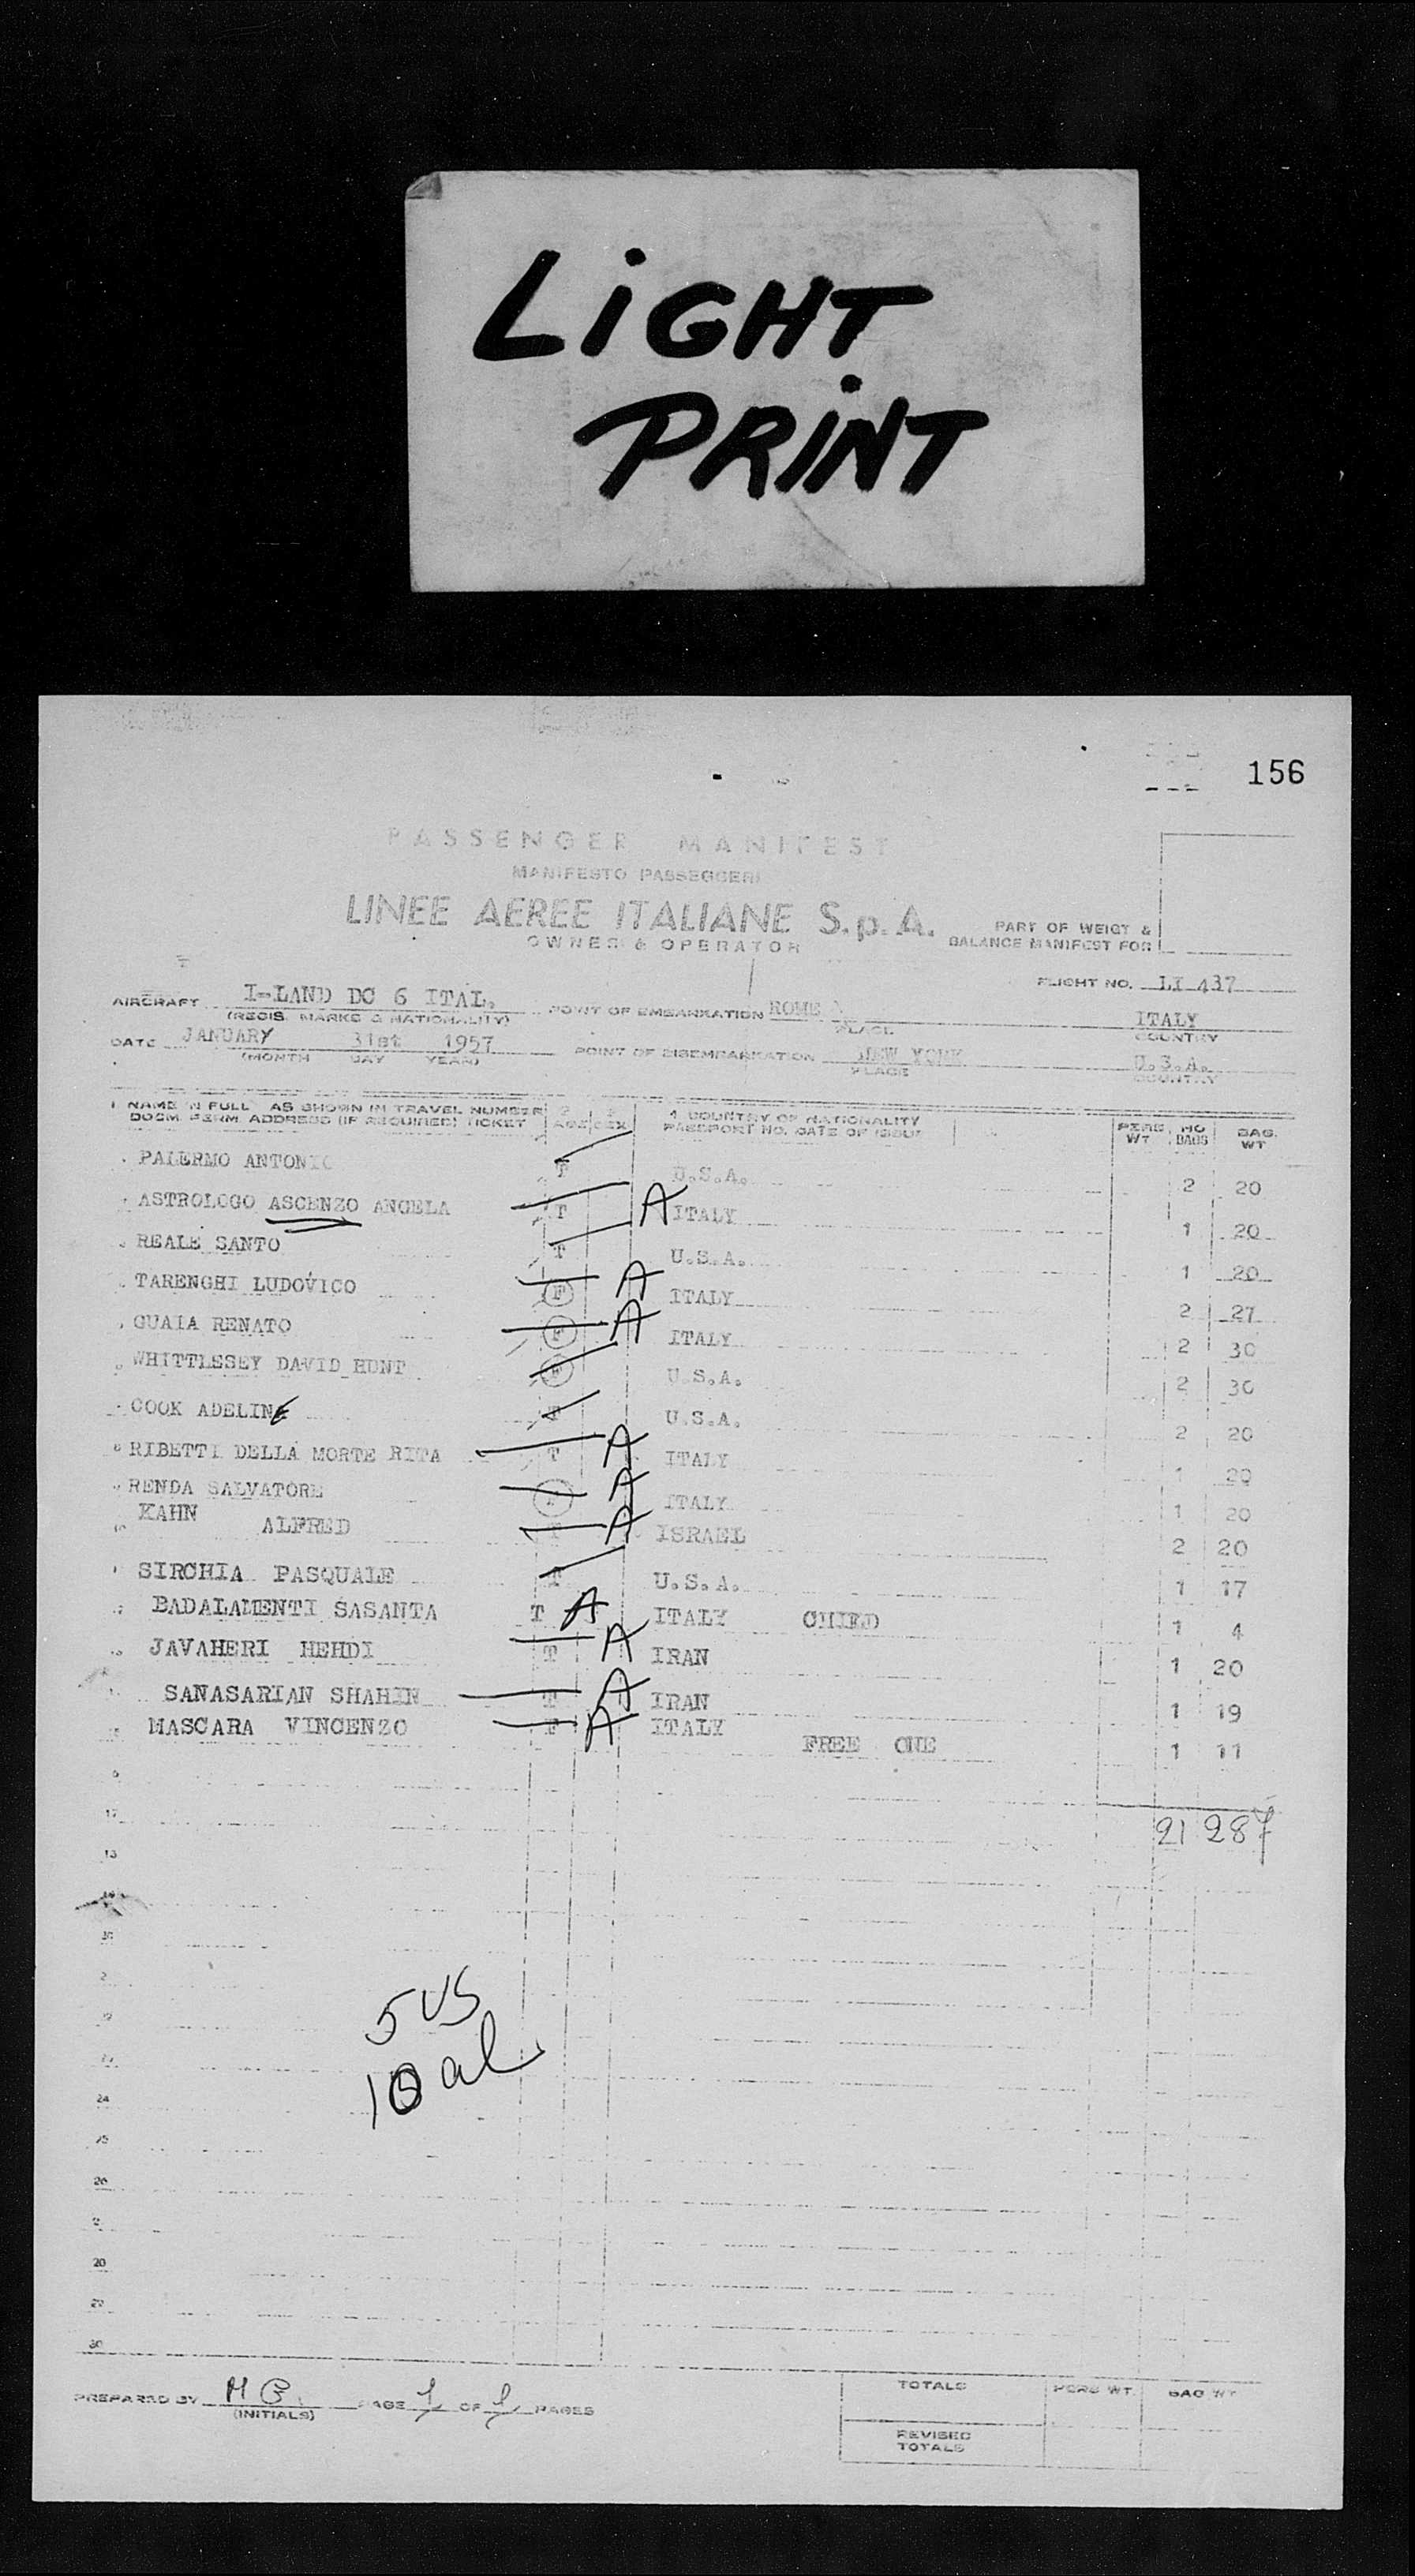 LiGHT
PRiNT
156
PASSENGER MANIFEST
MANIFESTO PASSEGGERI
LINEE AEREE ITALIANE S.p.A.
OWNER & OPERATOR
PART OF WEIGT &
BALANCE MANIFEST FOR
FLIGHT NO. LI 437
AIRCRAFT I-LAND DC 6 ITAL. POINT OF EMBARKATION ROME ITALY
(REGIS. MARKS & NATIONALITY) PLACE COUNTRY
DATE JANUARY 31st 1957 POINT OF DISEMBARKATION NEW YORK U.S.A.
(MONTH DAY YEAR) PLACE COUNTRY
1 NAME IN FULL AS SHOWN IN TRAVEL NUMBER 2 3 4 COUNTRY OF NATIONALITY PERS NO BAG.
DOCM. PERM. ADDRESS (IF REQUIRED) TICKET AGE SEX PASSPORT NO. DATE OF ISSUE WT BAGS WT
PALERMO ANTONIO U.S.A. 2 20
ASTROLOGO ASCENZO ANGELA T A ITALY 1 20
REALE SANTO T U.S.A. 1 20
TARENGHI LUDOVICO F A ITALY 2 27
GUAIA RENATO F A ITALY 2 30
WHITTLESEY DAVID HUNT F U.S.A. 2 30
COOK ADELINE T U.S.A. 2 20
RIBETTI DELLA MORTE RITA T A ITALY 1 20
RENDA SALVATORE A ITALY 1 20
KAHN ALFRED T A ISRAEL 2 20
SIRCHIA PASQUALE T U.S.A. 1 17
BADALAMENTI SASANTA T A ITALY CHIED 1 4
JAVAHERI HEHDI T A IRAN 1 20
SANASARIAN SHAHIN T A IRAN 1 19
MASCARA VINCENZO F A ITALY FREE ONE 1 11
17 21 287
24
25
26
30
5 US
10 al
PREPARED BY PAGE 1 OF 1 PAGES
(INITIALS)
TOTALS PERS WT. BAG WT
REVISED
TOTALS